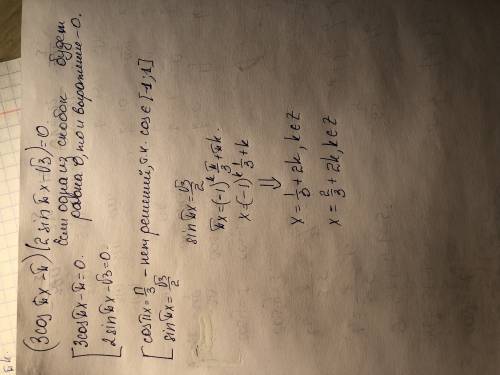 (3cosπx-π)(2sinπx-√3)=0
Если одна из скобок будет
равна 0, то и выражение-0.
[3cosπx-π=0.
[2sinπx-√3=0.
[cosπx=π/3 - нет решений, т.к. cos∈[-1;1]
[sinπx=√3/2
sinπx=√3/2
πx=(-1)^k π/3+πk.
x=(-1)^k 1/3+k
⇓
x=1/3+2k, k∈Z
x=2/3+2k, k∈Z